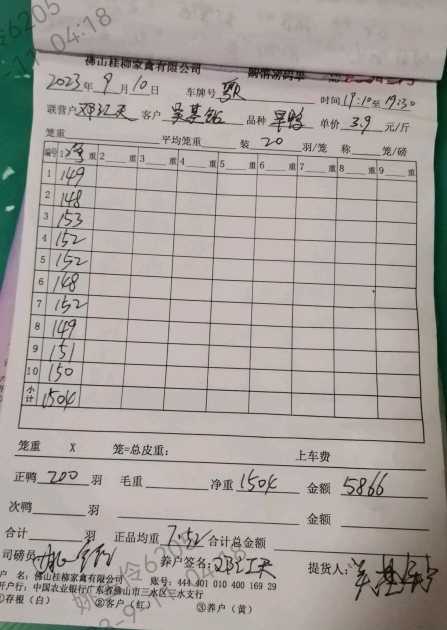 佛山桂柳家禽有限公司 销售磅码单
2023年9月10日 车牌号 时间19:10至19:30
联营户 客户 吴基钻 品种 旱鸭 单价 3.9 元/斤
笼重 平均笼重 装 20 羽/笼 称 笼/磅
编号 1净重 2 重 3 重 4 重 5 重 6 重 7 重 8 重 9 重
1 149
2 148
3 153
4 152
5 152
6 148
7 152
8 149
9 151
10 150
小计 1504
笼重 X 笼=总皮重: 上车费
正鸭 200 羽 毛重 净重 1504 金额 5866
次鸭 羽 金额
合计 羽 正品均重 7.52 合计总金额
司磅员 养户签名: 提货人:
户 名: 佛山桂柳家禽有限公司 账号: 444 401 010 400 169 29
开户行: 中国农业银行广东省佛山市三水区三水支行
①存根（白） ②客户（红） ③养户（黄）